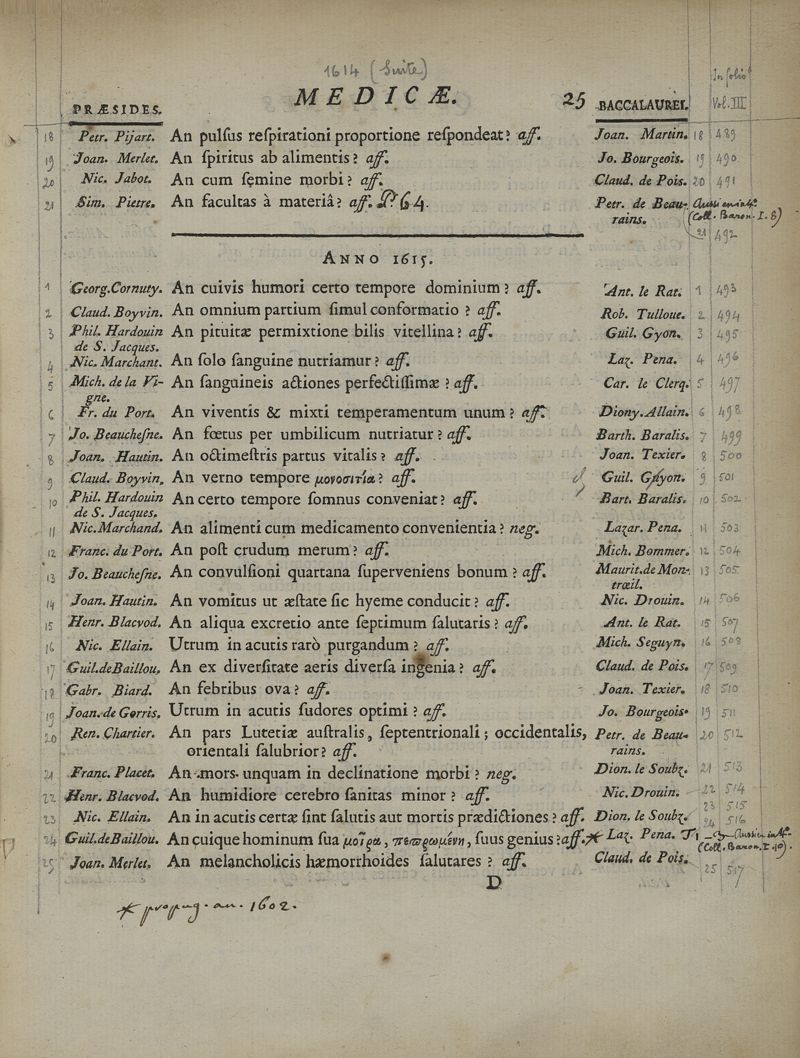 1614 (Suite)
In folio
MEDICÆ. 25
PRÆSIDES. BACCALAUREI. Vol. III
18 Petr. Pijart. An pulſus reſpirationi proportione reſpondeat? aff. Joan. Martin. 18 489
19 Joan. Merlet. An ſpiritus ab alimentis? aff. Jo. Bourgeois. 19 490
20 Nic. Jabot. An cum ſemine morbi? aff. Claud. de Pois. 20 491
21 Sim. Pietre. An facultas à materiâ? aff. Petr. de Beau- Aussi en in 4°
rains. (Coll. Baron. I. 8)
21 492
ANNO 1615.
1 Georg. Cornuty. An cuivis humori certo tempore dominium? aff. Ant. le Rat. 1 493
2 Claud. Boyvin. An omnium partium ſimul conformatio? aff. Rob. Tulloue. 2 494
3 Phil. Hardouin An pituitæ permixtione bilis vitellina? aff. Guil. Gyon. 3 495
de S. Jacques.
4 Nic. Marchant. An ſolo ſanguine nutriamur? aff. Laz. Pena. 4 496
5 Mich. de la Vi- An ſanguineis actiones perfectiſſimæ? aff. Car. le Clerq. 5 497
gne.
6 Fr. du Port. An viventis & mixti temperamentum unum? aff. Diony. Allain. 6 498
7 Jo. Beaucheſne. An fœtus per umbilicum nutriatur? aff. Barth. Baralis. 7 499
8 Joan. Hautin. An octimeſtris partus vitalis? aff. Joan. Texier. 8 500
9 Claud. Boyvin. An verno tempore μονοσιτία? aff. Guil. Gyon. 9 501
10 Phil. Hardouin An certo tempore ſomnus conveniat? aff. Bart. Baralis. 10 502
de S. Jacques.
11 Nic. Marchand. An alimenti cum medicamento convenientia? neg. Lazar. Pena. 11 503
12 Franc. du Port. An poſt crudum merum? aff. Mich. Bommer. 12 504
13 Jo. Beaucheſne. An convulſioni quartana ſuperveniens bonum? aff. Maurit. de Mon- 13 505
trœil.
14 Joan. Hautin. An vomitus ut æſtate ſic hyeme conducit? aff. Nic. Drouin. 14 506
15 Henr. Blacvod. An aliqua excretio ante ſeptimum ſalutaris? aff. Ant. le Rat. 15 507
16 Nic. Ellain. Utrum in acutis rarò purgandum? aff. Mich. Seguyn. 16 508
17 Guil. de Baillou. An ex diverſitate aeris diverſa ingenia? aff. Claud. de Pois. 17 509
18 Gabr. Biard. An febribus ova? aff. Joan. Texier. 18 510
19 Joan. de Gorris. Utrum in acutis ſudores optimi? aff. Jo. Bourgeois. 19 511
20 Ren. Chartier. An pars Lutetiæ auſtralis, ſeptentrionali; occidentalis, Petr. de Beau- 20 512
orientali ſalubrior? aff. rains.
21 Franc. Placet. An mors unquam in declinatione morbi? neg. Dion. le Soubz. 21 513
22 Henr. Blacvod. An humidiore cerebro ſanitas minor? aff. Nic. Drouin. 22 514
23 Nic. Ellain. An in acutis certæ ſint ſalutis aut mortis prædictiones? aff. Dion. le Soubz. 23 515
24 Guil. de Baillou. An cuique hominum ſua μοῖρα, πεπρωμένη, ſuus genius? aff. Laz. Pena. 24 516 Aussi in 4°
(Coll. Baron. I. 10).
25 Joan. Merlet. An melancholicis hæmorrhoides ſalutares? aff. Claud. de Pois. 25 517
D
an. 1602.